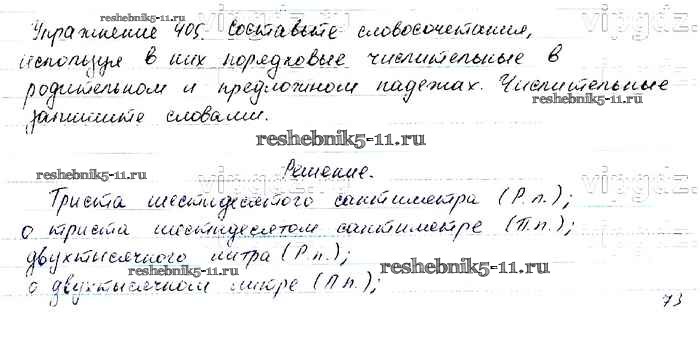 reshebnik5-11.ru
vipgdz.
Упражнение 405. Составьте словосочетания,
используя в них порядковые числительные в
родительном и предложном падежах. Числительные
запишите словами.
reshebnik5-11.ru
reshebnik5-11.ru
vipgdz.
Решение.
Триста шестидесятого сантиметра (Р.п.);
о триста шестидесятом сантиметре (П.п.);
vipgdz.
двухтысячного литра (Р.п.);
reshebnik5-11.ru
reshebnik5-11.ru
о двухтысячном литре (П.п.);
73